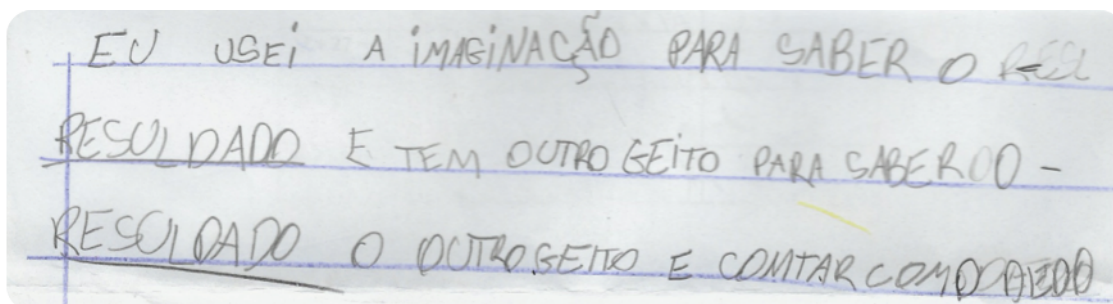 EU USEi A iMAGiNAÇÃO PARA SABER O RESL
RESULDADO E TEM OUTRO GEiTO PARA SABER O -
RESULDADO O OUTRO GEITO E COMTAR COM O DEDO